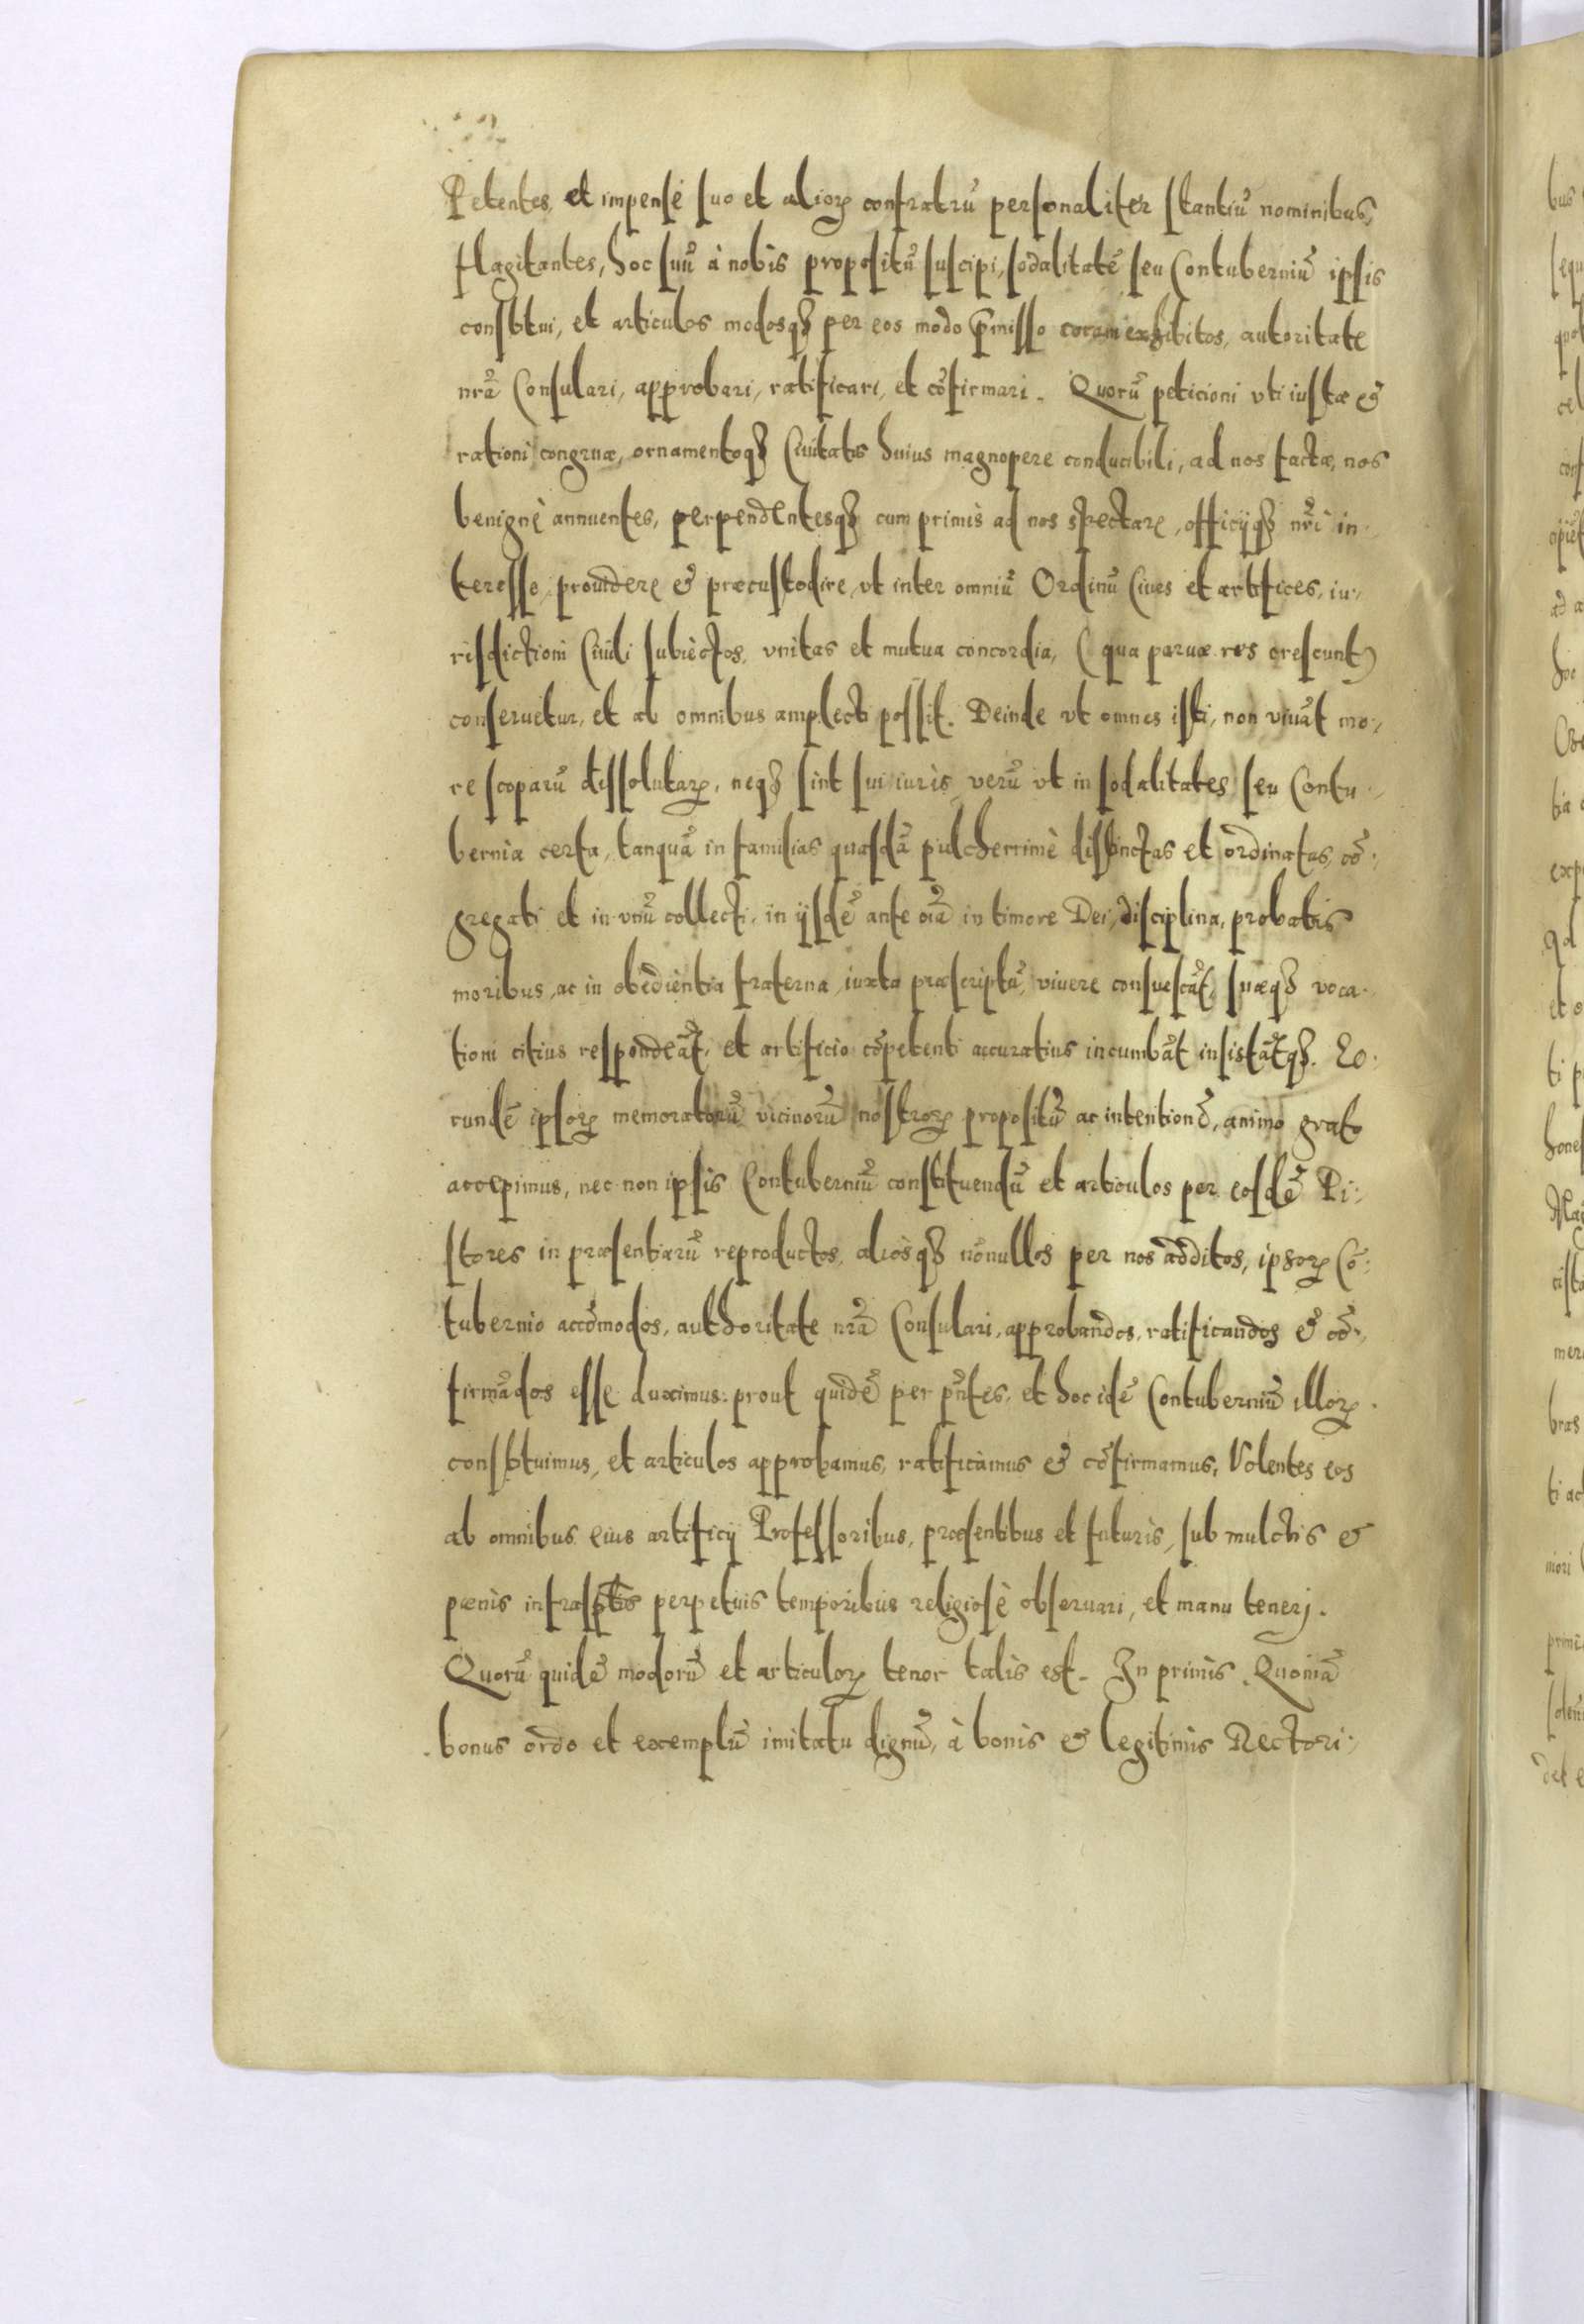 Petentes, et impensè suo et alioꝝ confratrũ personaliter stantiũ nominibus,
flagitantes, hoc suũ à nobis propositũ suscipi, sodalitatẽ seu Contuberniũ ipsis
constitui, et articulos modosqȝ per eos modo p̃misso coram exhibitos, autoritate
nr̃a Consulari, approbari, ratificari, et cõfirmari. Quorũ peticioni vti iustæ &
rationi congruæ, ornamentoqȝ Ciuitatis huius magnopere conducibili, ad nos factæ, nos
benignè annuentes, perpendentesqȝ cum primis ad nos spectare, officijqȝ nr̃i in-
teresse, prouidere & præcustodire, vt inter omniũ Ordinũ Ciues et artifices, iu-
risdictioni Ciuili subiectos, vnitas et mutua concordia, (qua paruæ res crescunt)
conseruetur, et ab omnibus amplecti possit. Deinde vt omnes isti, non viuãt mo-
re scoparũ dissolutaꝝ, neqȝ sint sui iuris, verũ vt in sodalitates seu Contu-
bernia certa, tanquã in familias quasdã pulcherrimè distinctas et ordinatas, cõ-
gregati et in vnũ collecti, in ijsdẽ ante oĩa in timore Dei, disciplina, probatis
moribus, ac in obedientia fraterna, iuxta præscriptũ, viuere consuescãt, suæqȝ voca-
tioni citius respondeãt, et artificio cõpetenti accuratius incumbãt insistãtqȝ. Eo-
rundẽ ipsoꝝ memoratorũ vicinorũ nostroꝝ propositũ ac intentionẽ, animo grato
accepimus, nec non ipsis Contuberniũ constituendũ et articulos per eosdẽ Pi-
stores in præsentiarũ reproductos, aliosqȝ nõnullos per nos additos, ipsoꝝ Cõ-
tubernio accõmodos, authoritate nr̃a Consulari, approbandos, ratificandos & cõ-
firmãdos esse duximus: prout quidẽ per pñtes, et hoc idẽ Contuberniũ illoꝝ
constituimus, et articulos approbamus, ratificamus & cõfirmamus, Volentes eos
ab omnibus eius artificij Professoribus, præsentibus et futuris, sub mulctis &
pœnis infrasptis perpetuis temporibus religiosè obseruari, et manu tenerj.
Quorũ quidẽ modorũ et articuloꝝ tenor talis est. In primis. Quoniã
bonus ordo et exemplũ imitatu dignũ, à bonis & legitimis Rectori-